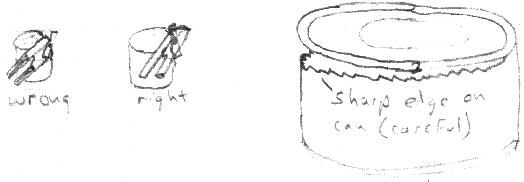 wrong
right
sharp edge on
can (careful)